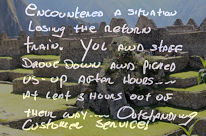 ENCOUNTERED A SITUATION
LOSING THE RETURN
TRAIN. YUL AND STAFF
DROVE DOWN AND PICKED
US-UP AFTER HOURS---
AT LEAST 3 HOURS OUT OF
THEIR WAY--- OUTSTANDING
CUSTOMER SERVICE!